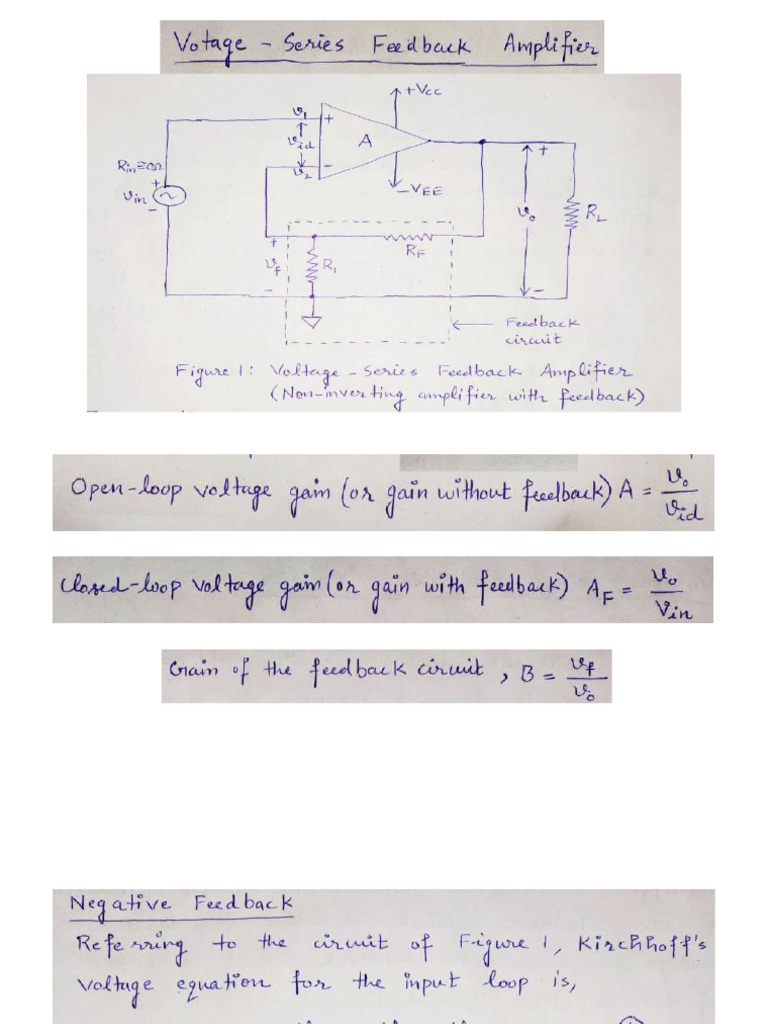 Votage - Series Feedback Amplifier
+Vcc
v1
+
A
vid
Rin≅0Ω
-
v2
+
vin
-
-VEE
+
vo
RL
RF
+
vf
R1
-
-
Feedback
circuit
Figure 1: Voltage - series Feedback Amplifier
(Non-inverting amplifier with feedback)
Open-loop voltage gain (or gain without feedback) A = vo/vid
Closed-loop voltage gain (or gain with feedback) AF = vo/Vin
Gain of the feedback circuit, B = vf/vo
Negative Feedback
Referring to the circuit of Figure 1, Kirchhoff's
voltage equation for the input loop is,